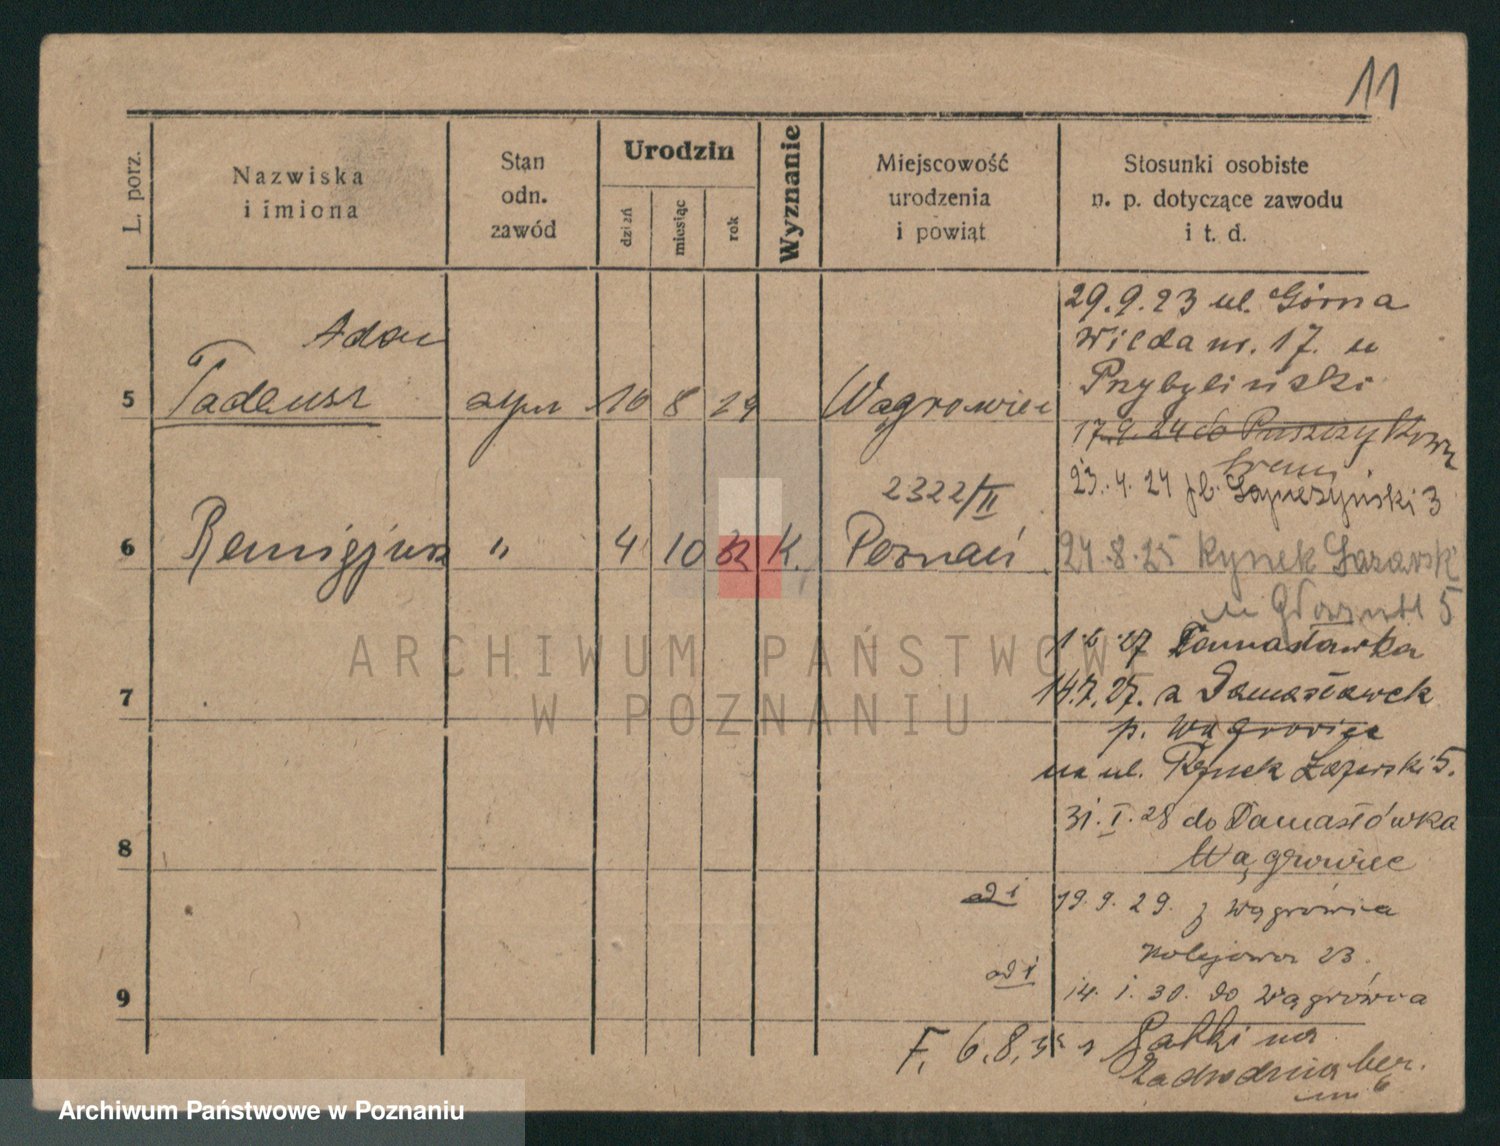 11
L. porz.
Nazwiska
i imiona
Stan
odn.
zawód
Urodzin
dzień
miesiąc
rok
Wyznanie
Miejscowość
urodzenia
i powiat
Stosunki osobiste
n. p. dotyczące zawodu
i t. d.
5
Adam
Tadeusz
syn
16
8
29
Wągrowiec
29.9.23 ul. Górna
Wilda nr. 17. u
Przybyliński
17.9.24 do Puszczykowa
Śrem
23.4.24
3
6
Remigjusz
"
4
10
32
K.
2322/II
Poznań
27.8.25 Rynek Łazarsk
5
7
1.6.27 Damasławka
14.7.27. z Damasławek
p. Wągrowiec
na ul. Rynek Łazarski 5.
8
31.I.28 do Damasłówka
Wągrowiec
19.9.29. z Wągrówca
Kolejowa 23.
9
14.1.30. do Wągrówca
F. 6.8.
na
6
ARCHIWUM PAŃSTWOWE
W POZNANIU
Archiwum Państwowe w Poznaniu